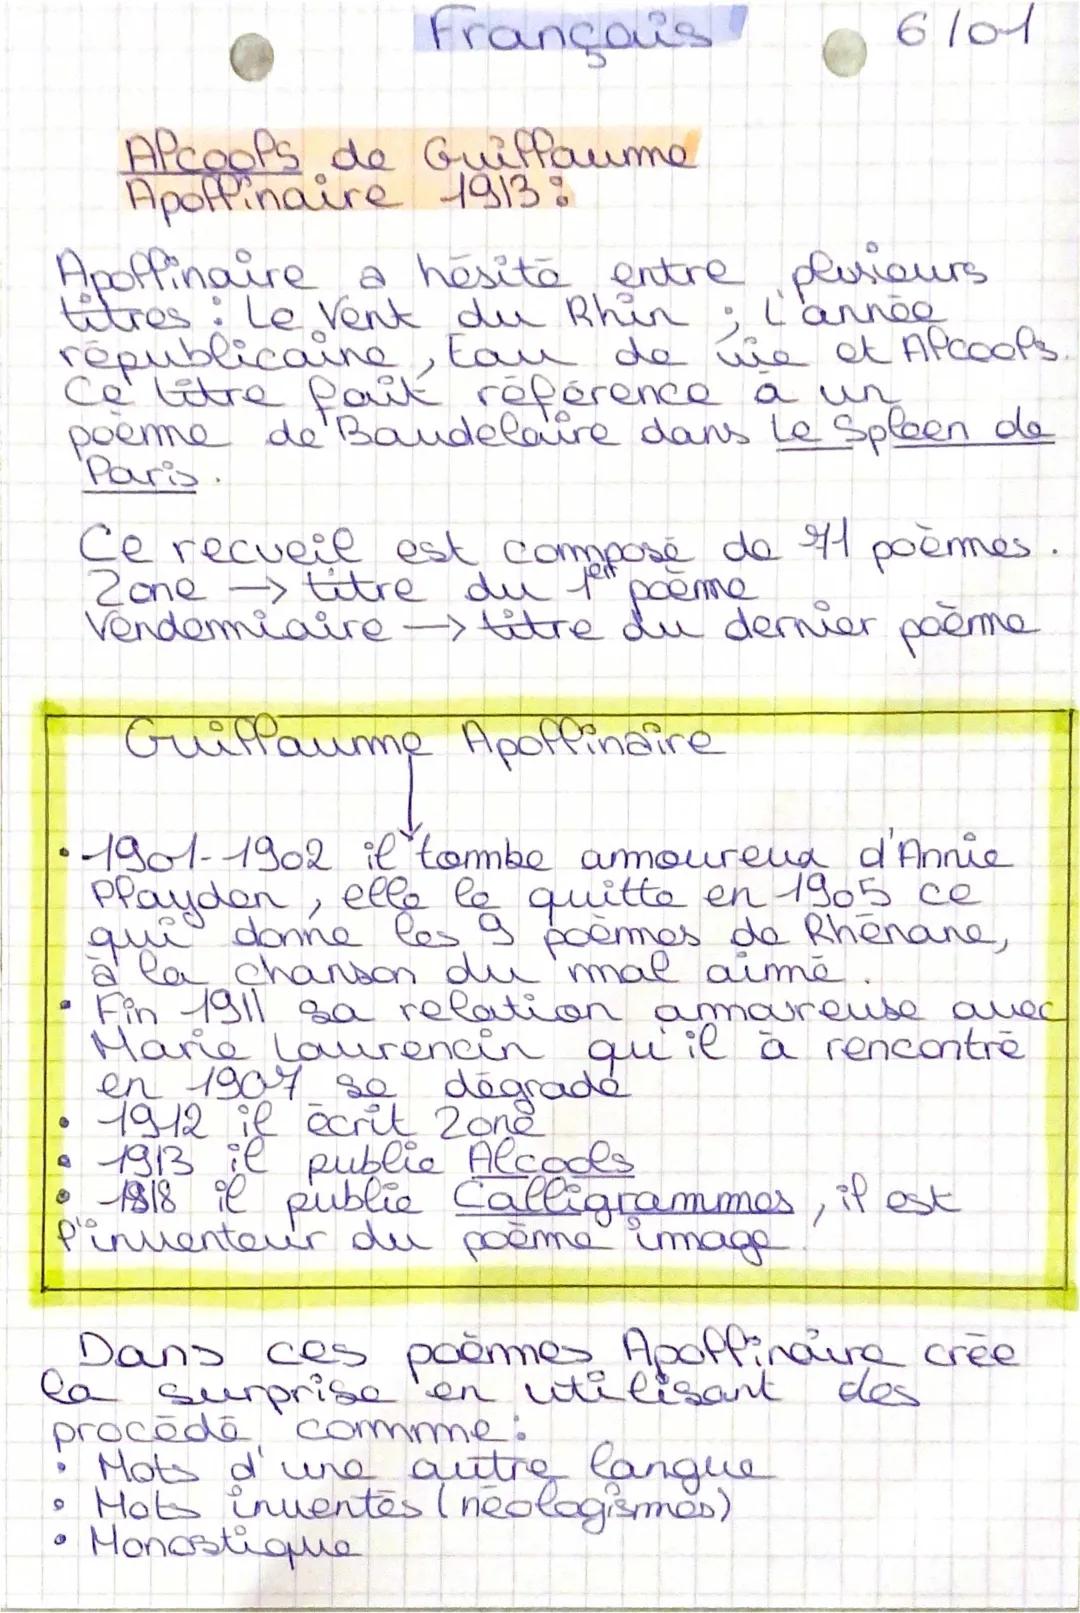 Français
6/01
Alcools de Guillaume
Apollinaire 1913 :
Apollinaire a hésité entre plusieurs
titres : Le Vent du Rhin ; L'année
républicaine, Eau de vie et Alcools.
Ce titre fait référence à un
poème de Baudelaire dans Le Spleen de
Paris.
Ce recueil est composé de 71 poèmes.
Zone → titre du 1er poème
Vendemiaire → titre du dernier poème
Guillaume Apollinaire
• 1901-1902 il tombe amoureux d'Annie
Playden, elle le quitte en 1905 ce
qui donne les 9 poèmes de Rhénane,
à la chanson du mal aimé.
• Fin 1911 sa relation amoureuse avec
Marie Laurencin qu'il à rencontré
en 1907 se dégrade
• 1912 il écrit Zone
• 1913 il publie Alcools
• 1918 il publie Calligrammes, il est
l'inventeur du poème image.
Dans ces poèmes Apollinaire crée
la surprise en utilisant des
procédé comme :
• Mots d'une autre langue
• Mots inventés (néologismes)
• Monostique